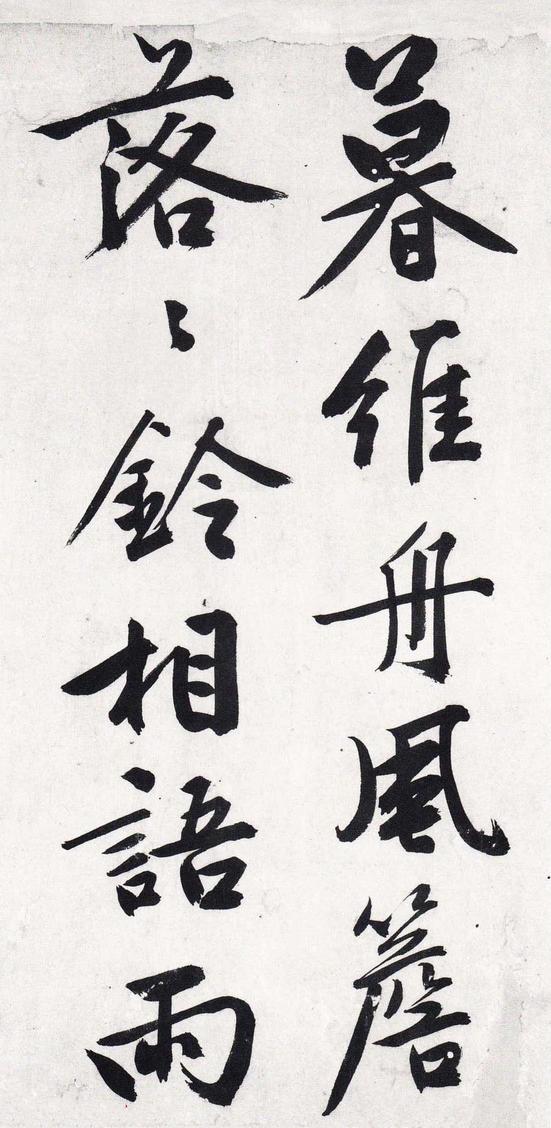 暮維舟風簷
落〻鈴相語雨